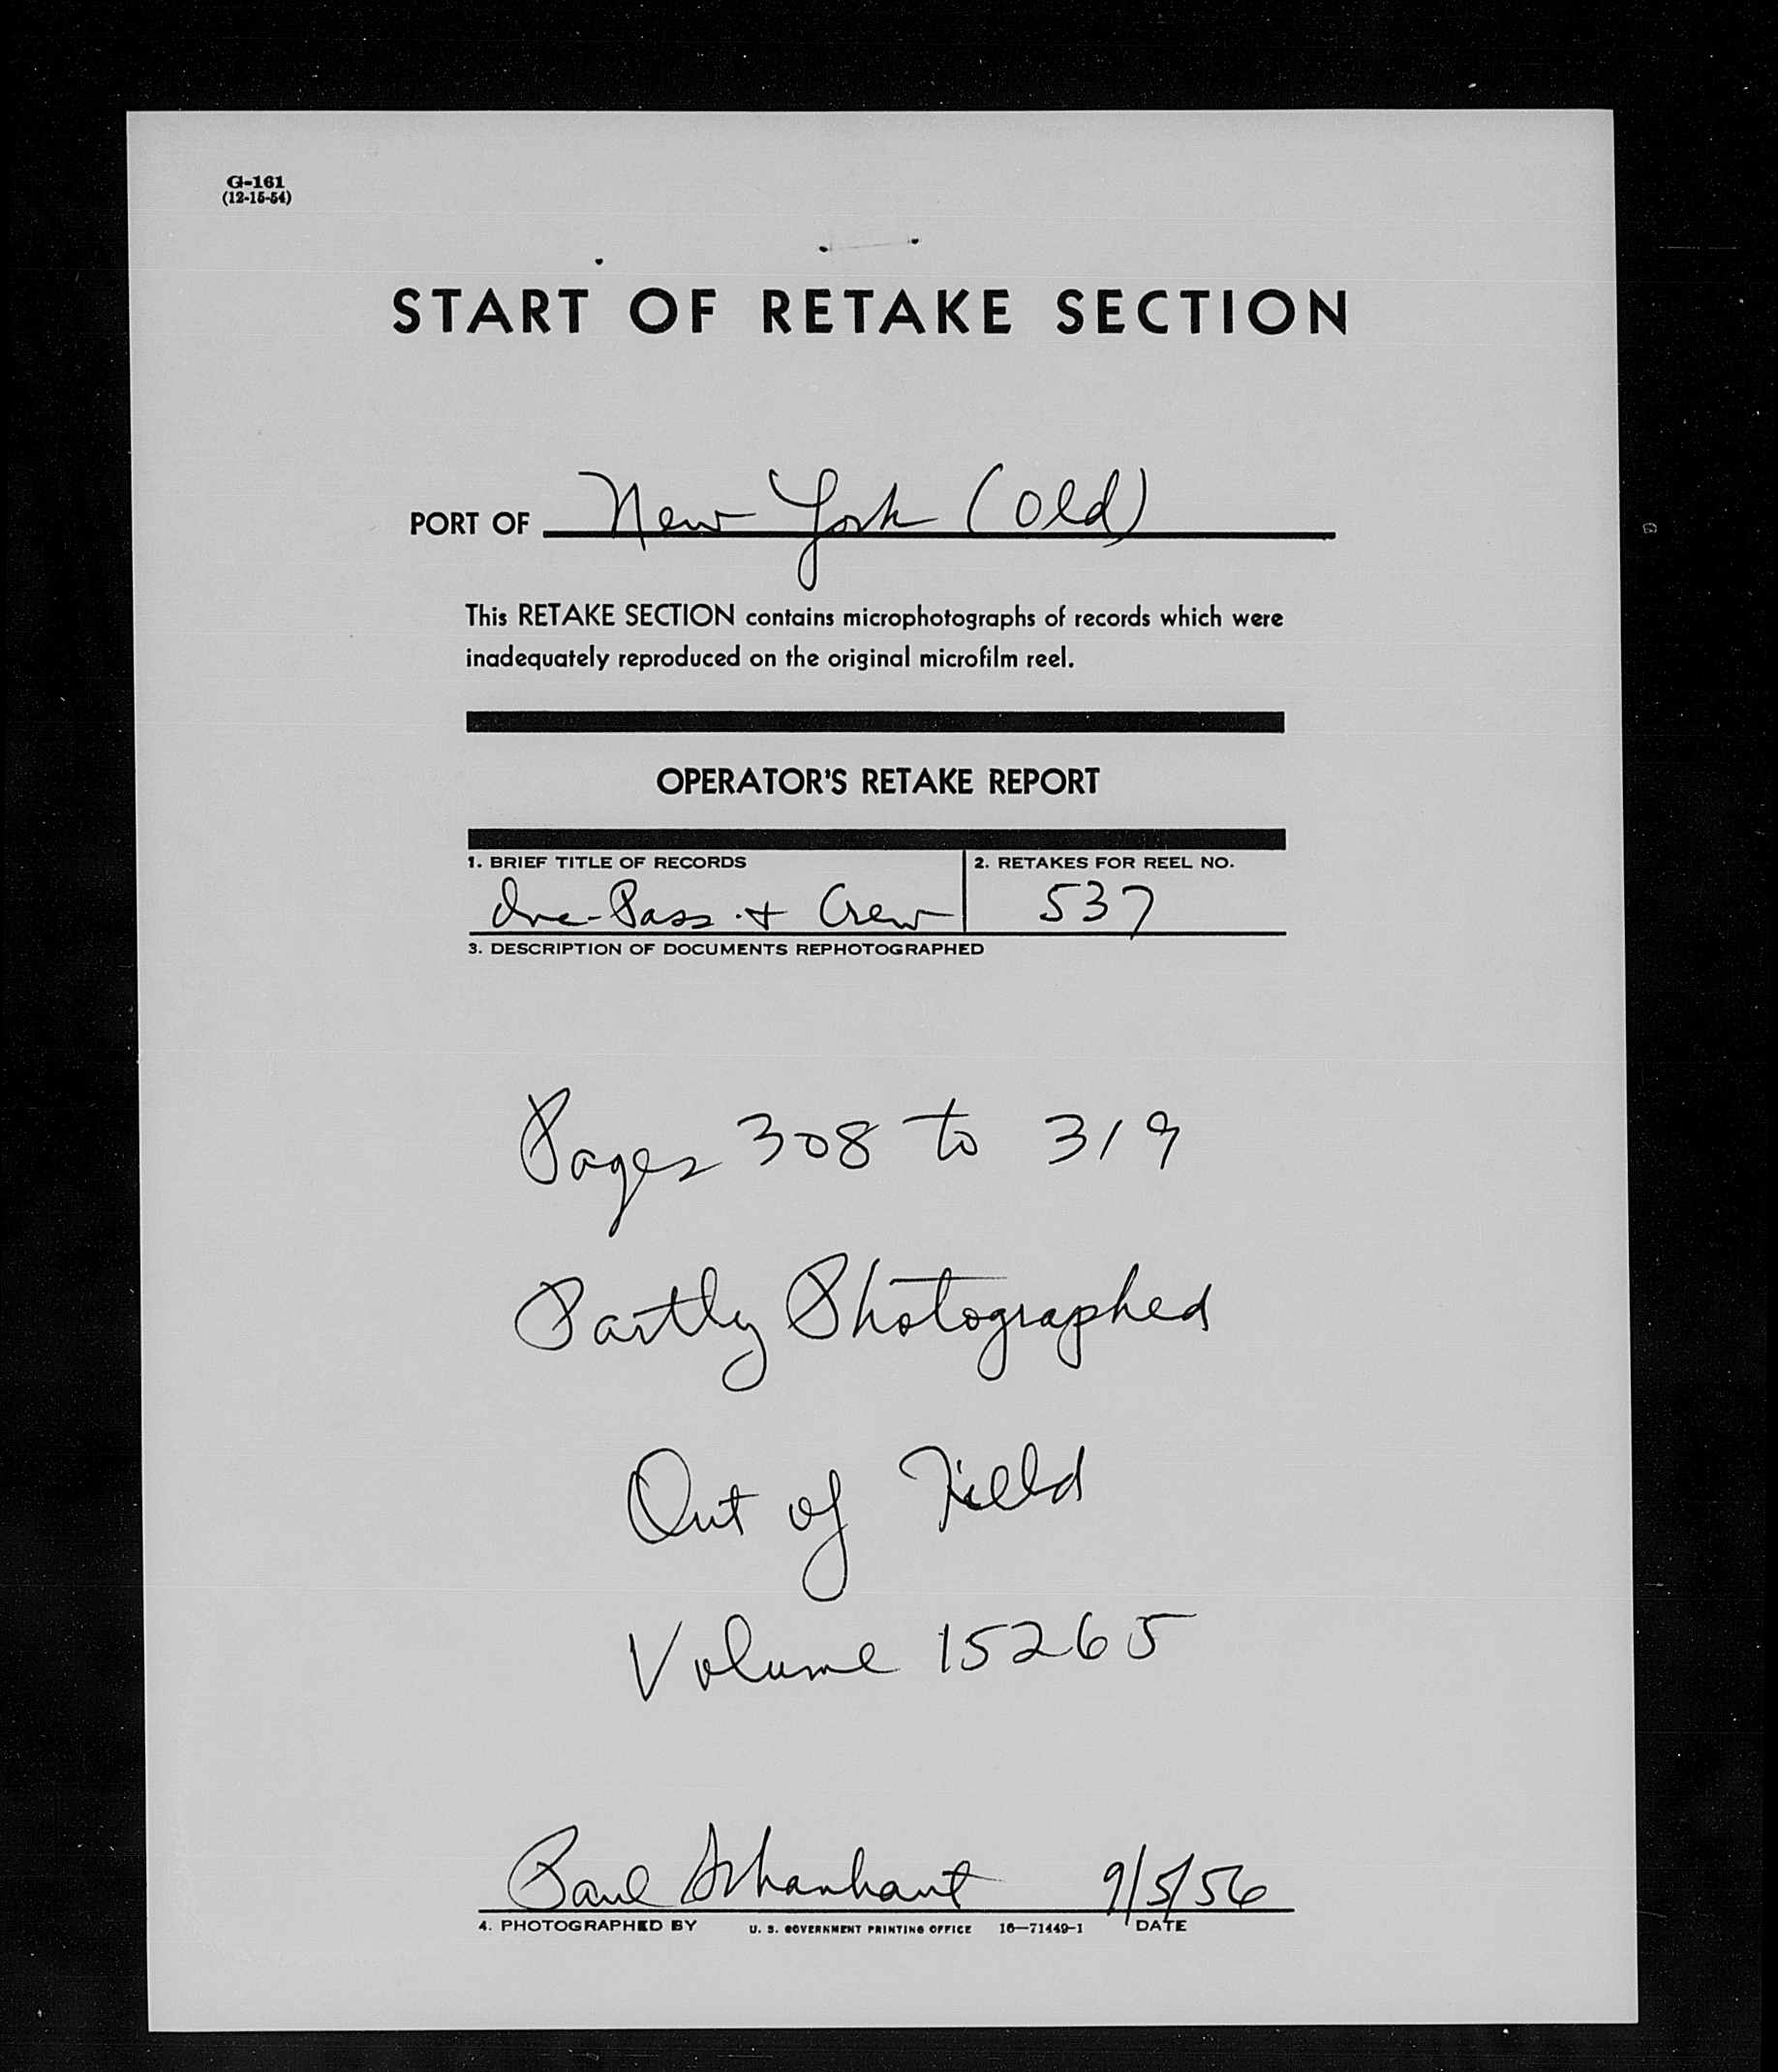 G-161
(12-15-54)
START OF RETAKE SECTION
PORT OF New York (Old)
This RETAKE SECTION contains microphotographs of records which were
inadequately reproduced on the original microfilm reel.
OPERATOR'S RETAKE REPORT
1. BRIEF TITLE OF RECORDS 2. RETAKES FOR REEL NO.
Pass. + Crew 537
3. DESCRIPTION OF DOCUMENTS REPHOTOGRAPHED
Pages 308 to 319
Partly Photographed
Out of Field
Volume 15265
Paul 9/5/56
4. PHOTOGRAPHED BY U. S. GOVERNMENT PRINTING OFFICE 16—71449-1 DATE